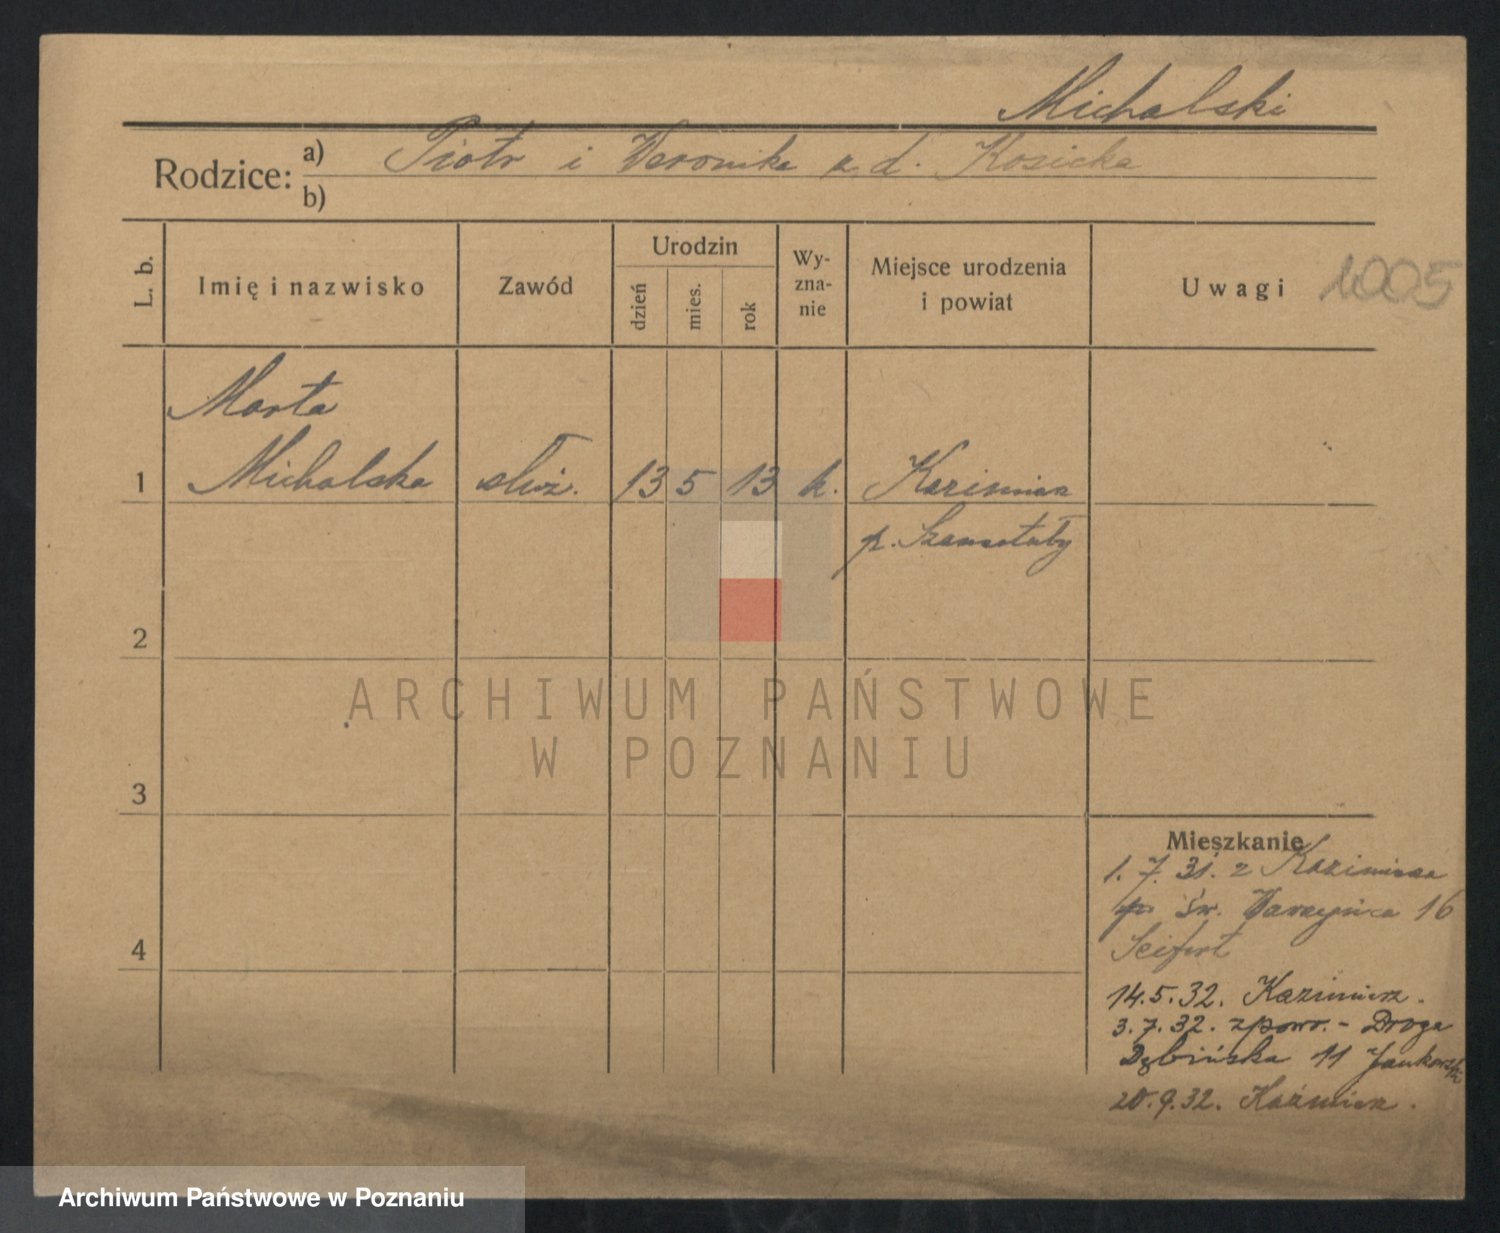 Michalski
Rodzice: a) Piotr i Weronika z d. Kosicka
b)
L. b.
Imię i nazwisko
Zawód
Urodzin
dzień
mies.
rok
Wy-
zna-
nie
Miejsce urodzenia
i powiat
Uwagi
1005
Marta
1 Michalska służ. 13 5 13 k. Kazimierz
p. Szamotuły
2
3
4
Mieszkanie
1. 7. 31. z Kazimierza
św. Wawrzyńca 16
Seifert
14.5.32. Kazimierz.
3.7.32. zpowr. - Droga
Dębińska 11 Jankowski
20.9.32. Kaźmierz.
ARCHIWUM PAŃSTWOWE
W POZNANIU
Archiwum Państwowe w Poznaniu